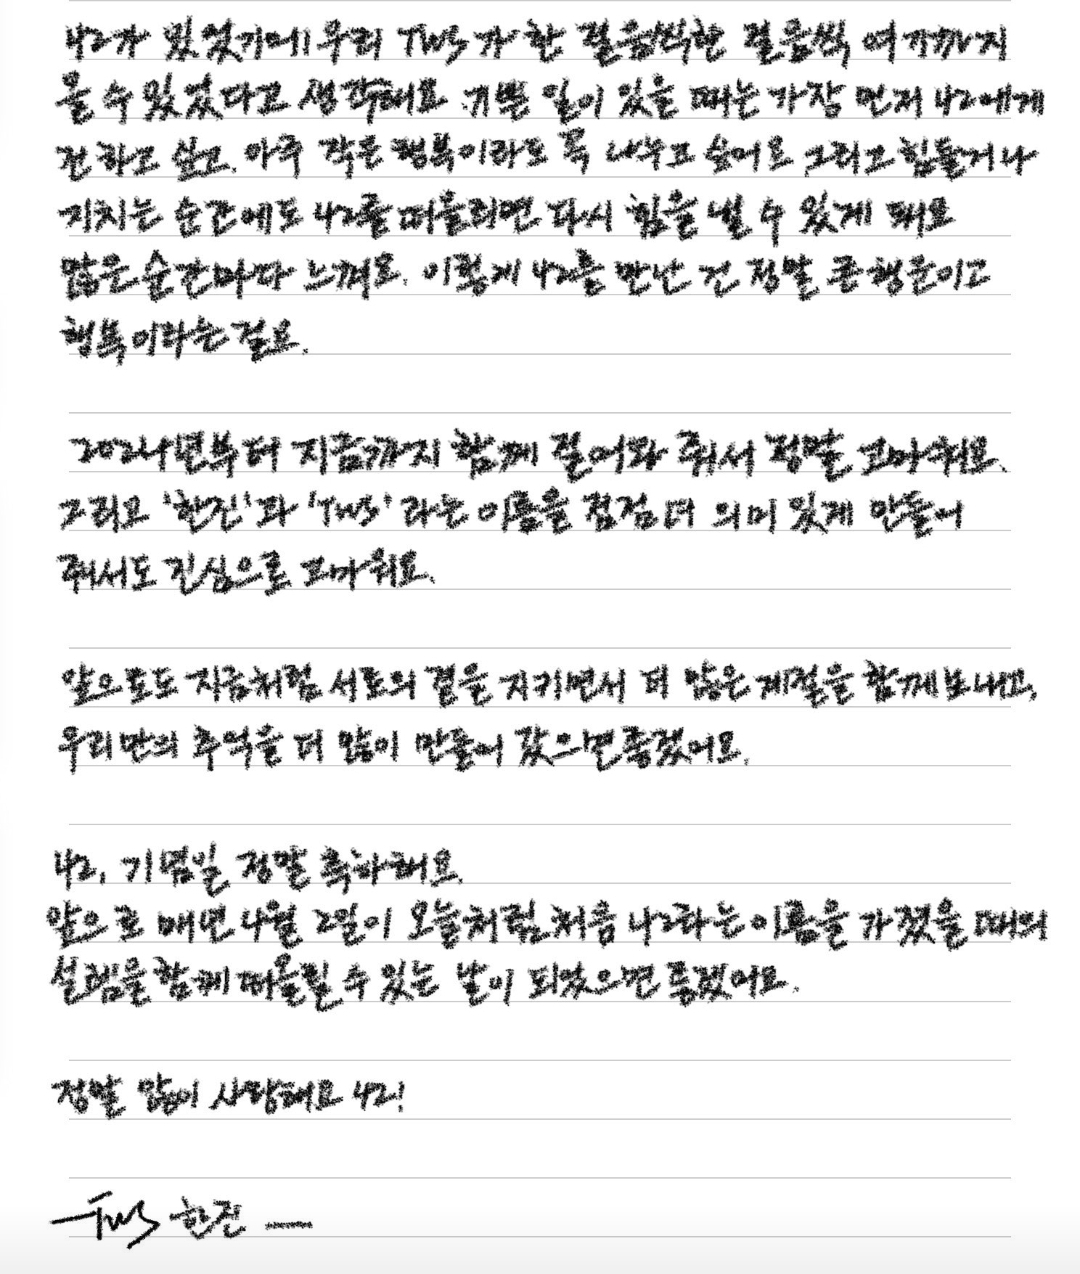 42가 있었기에 우리 TWS가 한 걸음씩 한 걸음씩 여기까지
올 수 있었다고 생각해요. 기쁜 일이 있을 때는 가장 먼저 42에게
전하고 싶고, 아주 작은 행복이라도 꼭 나누고 싶어요. 그리고 힘들거나
지치는 순간에도 42를 떠올리면 다시 힘을 낼 수 있게 돼요
많은 순간마다 느껴요. 이렇게 42를 만난 건 정말 큰 행운이고
행복이라는 걸요.
2024년부터 지금까지 함께 걸어와 줘서 정말 고마워요.
그리고 '한진'과 'TWS'라는 이름을 점점 더 의미 있게 만들어
줘서도 진심으로 고마워요.
앞으로도 지금처럼 서로의 곁을 지키면서 더 많은 계절을 함께 보내고,
우리만의 추억을 더 많이 만들어 갔으면 좋겠어요.
42, 기념일 정말 축하해요.
앞으로 매년 4월 2일이 오늘처럼, 처음 42라는 이름을 가졌을 때의
설렘을 함께 떠올릴 수 있는 날이 되었으면 좋겠어요.
정말 많이 사랑해요 42!
TWS 한진 —